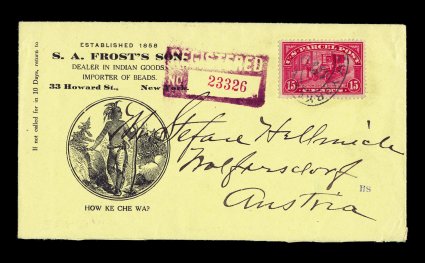 If not called for in 10 Days, return to
ESTABLISHED 1858
S. A. FROST'S SON,
DEALER IN INDIAN GOODS,
IMPORTER OF BEADS.
33 Howard St., New York.
REGISTERED
NO. 23326
U.S. PARCEL POST
15 15
CENTS
Stefan Hellmich
Wolfarsdorf
Austria
HOW KE CHE WA?